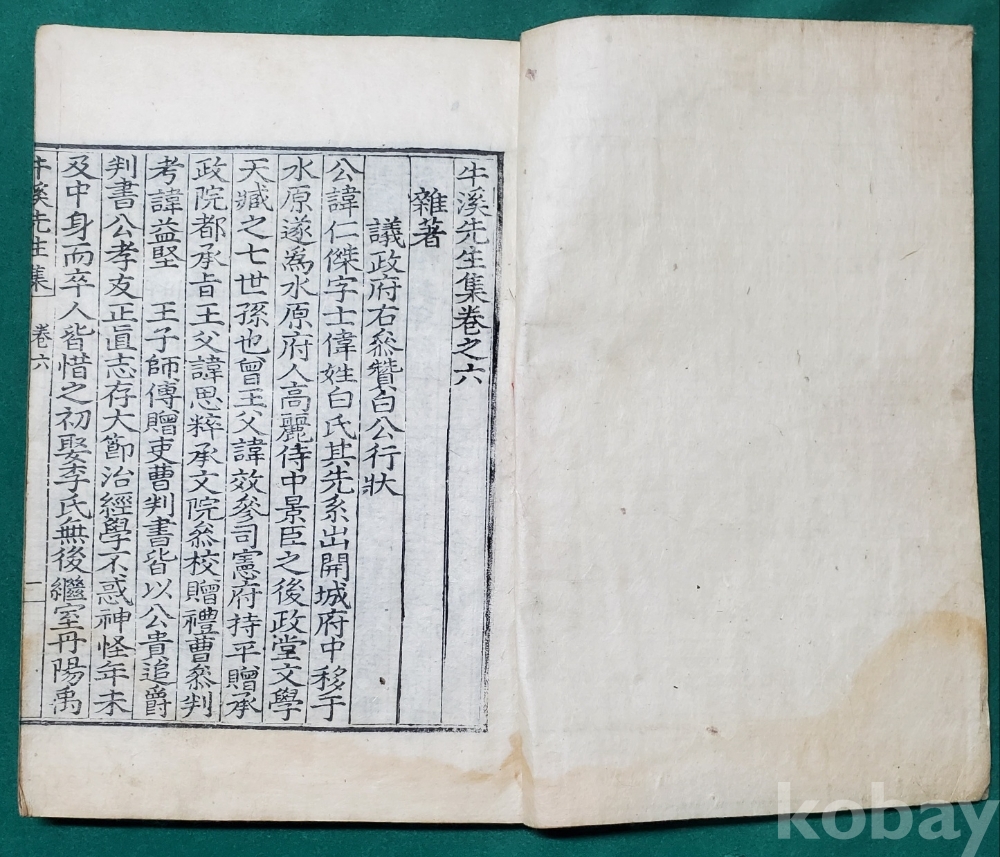 牛溪先生集卷之六
雜著
議政府右叅贊白公行狀
公諱仁傑字士偉姓白氏其先系出開城府中移于
水原遂爲水原府人高麗侍中景臣之後政堂文學
天臧之七世孫也曾王父諱效參司憲府持平贈承
政院都承旨王父諱思粹承文院叅校贈禮曹叅判
考諱益堅 王子師傅贈吏曹判書皆以公貴追爵
判書公孝友正直志存大節治經學不惑神怪年未
及中身而卒人皆惜之初娶李氏無後繼室丹陽禹
牛溪先生集 卷六 一
kobay